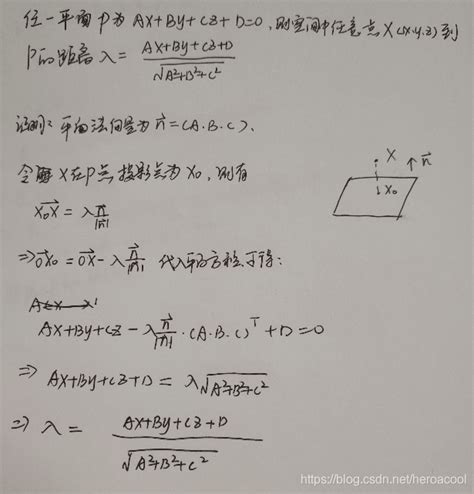 任一平面 P为 AX+BY+CZ+D=0, 则空间中任意点 X(x,y,z) 到
P的距离 λ = (AX+BY+CZ+D) / √(A²+B²+C²)
证明: 平面法向量为 n⃗ = (A.B.C).
令 X在P点投影点为 X₀, 则有
X₀X⃗ = λ n⃗/|n⃗|
⇒ OX₀⃗ = OX⃗ - λ n⃗/|n⃗| 代入平面方程可得:
X ↑ n⃗
X₀
AX+BY+CZ - λ n⃗/|n⃗| · (A.B.C)ᵀ + D = 0
⇒ AX+BY+CZ+D = λ √(A²+B²+C²)
⇒ λ = (AX+BY+CZ+D) / √(A²+B²+C²)
https://blog.csdn.net/heroacool